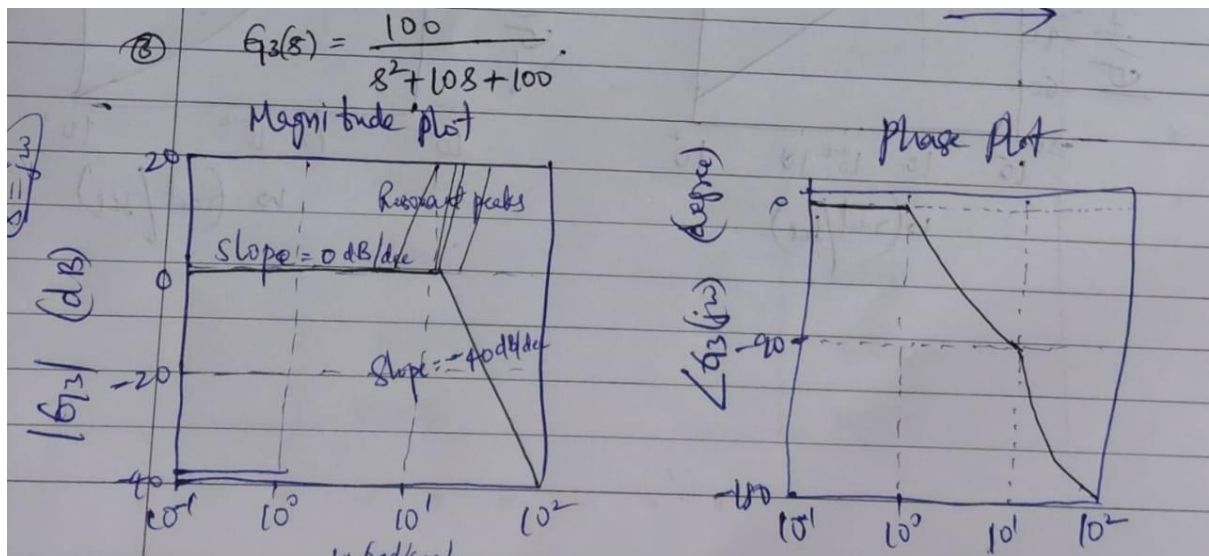 ③ G3(s) = 100 / s²+10s+100
Magnitude plot
s=jω
|G3| (dB)
20
Resonant peaks
Slope = 0 dB/dec
0
Slope = -40 dB/dec
-20
-40
10⁻¹ 10⁰ 10¹ 10²
Phase Plot
∠G3(jω) (degree)
0
-90
-180
10⁻¹ 10⁰ 10¹ 10²